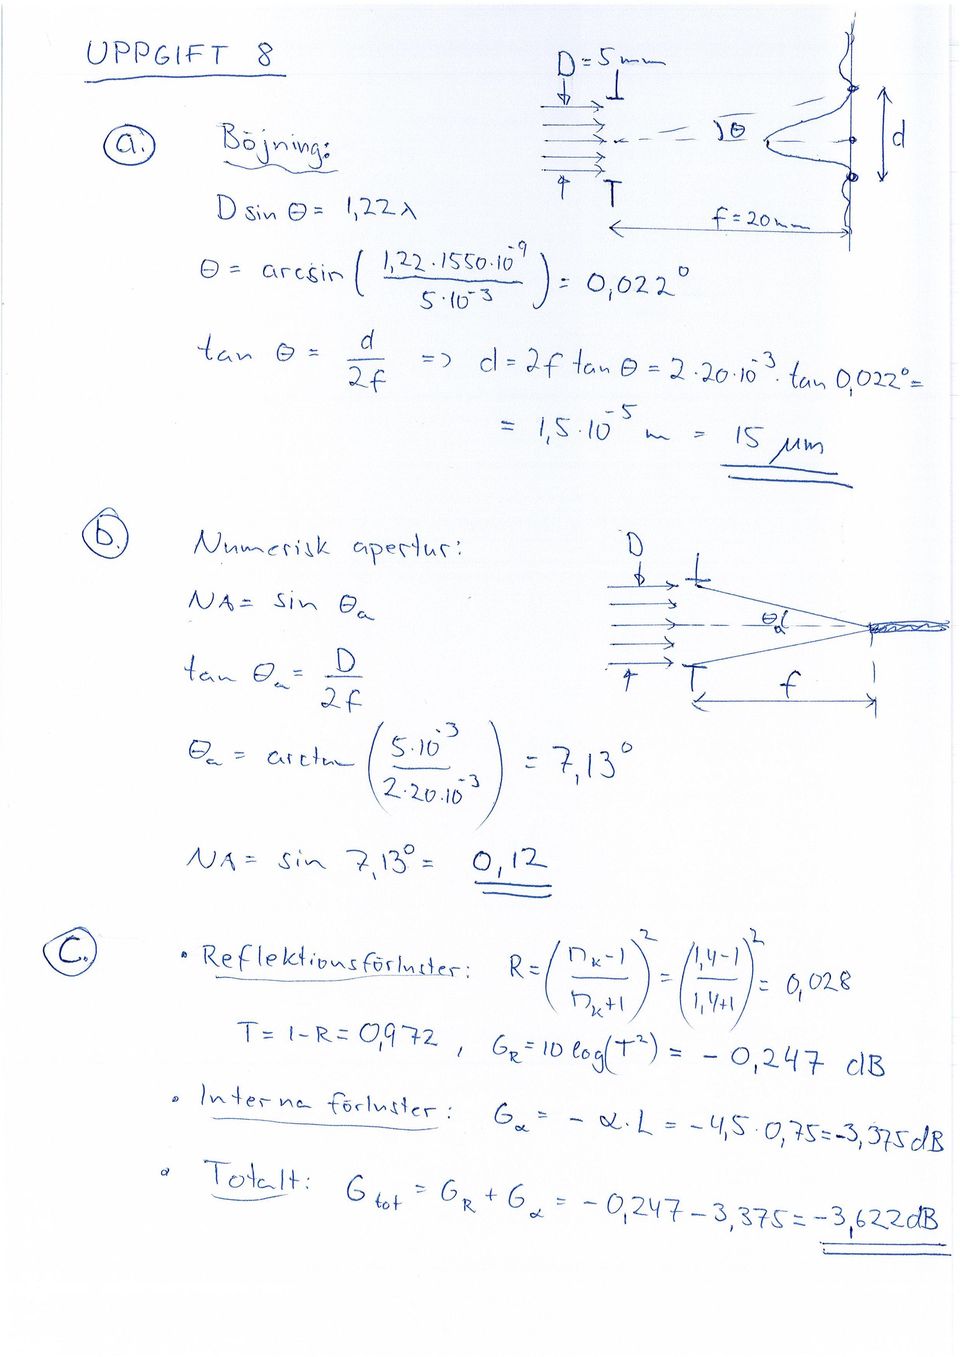 UPPGIFT 8
D = 5 mm
a. Böjning:
θ
d
D sin θ = 1,22 λ
f = 20 mm
θ = arcsin ( 1,22 · 1550 · 10⁻⁹ / 5 · 10⁻³ ) = 0,022°
tan θ = d / 2f => d = 2f tan θ = 2 · 20 · 10⁻³ · tan 0,022° =
= 1,5 · 10⁻⁵ m = 15 µm
b. Numerisk apertur:
D
NA = sin θa
θa
tan θa = D / 2f
f
θa = arctan ( 5 · 10⁻³ / 2 · 20 · 10⁻³ ) = 7,13°
NA = sin 7,13° = 0,12
C. • Reflektionsförluster: R = ( nk - 1 / nk + 1 )² = ( 1,4 - 1 / 1,4 + 1 )² = 0,028
T = 1 - R = 0,972 , GR = 10 log(T²) = - 0,247 dB
• Interna förluster: Gα = - α · L = - 4,5 · 0,75 = -3,375 dB
• Totalt: Gtot = GR + Gα = - 0,247 - 3,375 = -3,622 dB